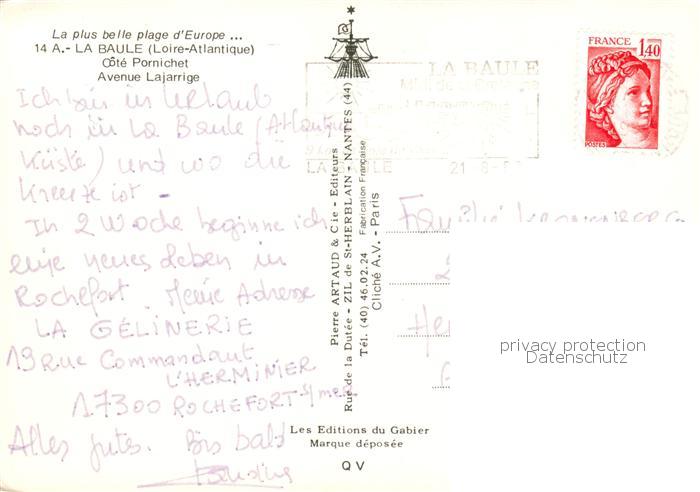 La plus belle plage d'Europe ...
14 A.- LA BAULE (Loire-Atlantique)
Côté Pornichet
Avenue Lajarrige
Ich bin in Urlaub
noch in La Baule (Atlantique
Küste) und wo die
ist -
In 2 Woche beginne ich
eine neues Leben in
Rochefort. Meine Adresse
LA GÉLINERIE
19 Rue Commandant
L'HERMINIER
17300 ROCHEFORT s/mer
Alles gutes. Bis bald
Pierre ARTAUD & Cie - Editeurs
Rue de la Dutée - ZIL de St-HERBLAIN - NANTES (44)
Tél. (40) 46.02.24 Fabrication Française
Cliché A.V. - Paris
Les Editions du Gabier
Marque déposée
Q V
LA BAULE
LA BAULE 21 8
FRANCE
1,40
POSTES
Familie
privacy protection
Datenschutz